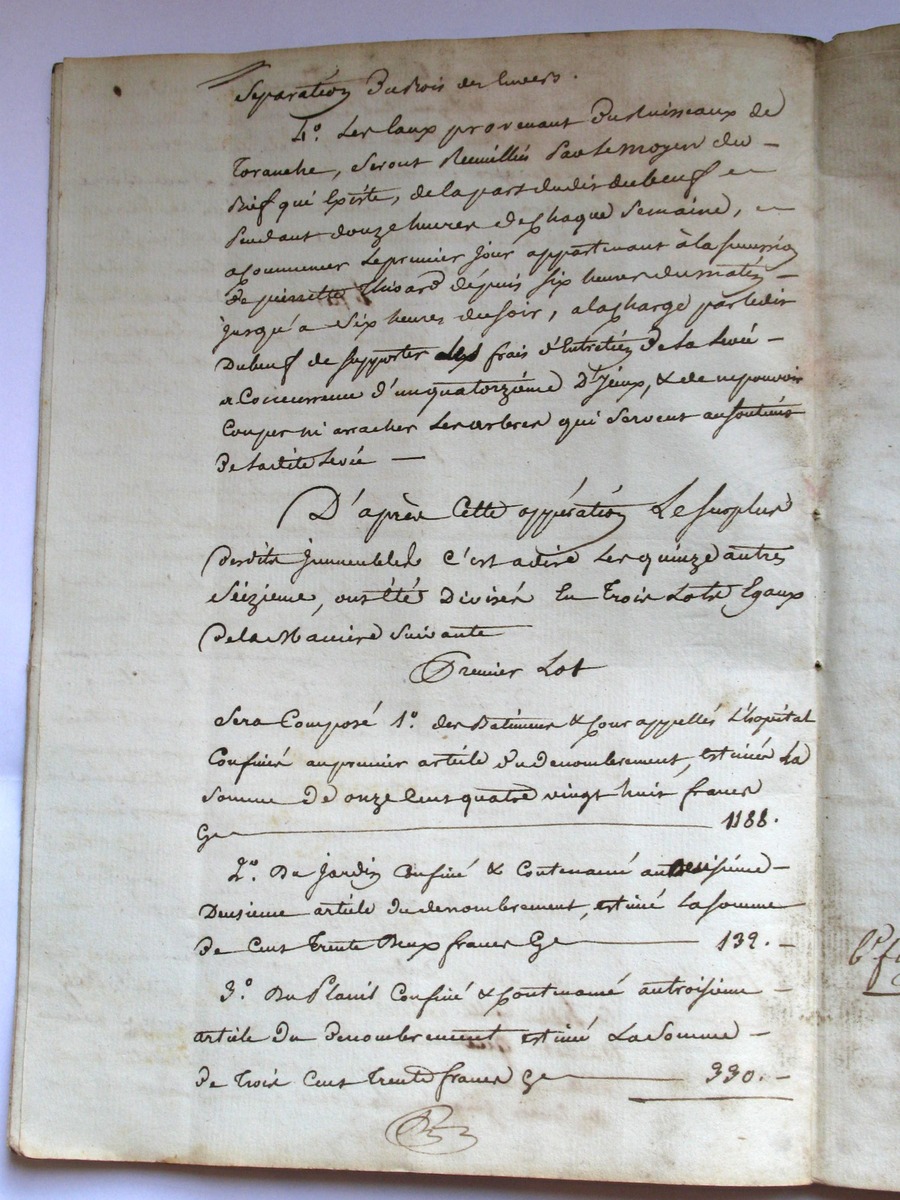 Séparation Du Bois des
4.º Les Eaux provenant Du Ruisseaux de
Toranche, Seront Recueillies Par Le moyen du
Bief qui Existe, de la part dudit duboeuf
Pendant douze heures de chaque Semaine,
a Commencer Le premier jour appartenant à la
De pierrette Thioard dépuis Six heures du matin
jusqu'a Six heures du soir, a la Charge par ledit
Duboeuf de Supporter Les frais d'Entretien De La Levée
a Concurrence d'un quatorzième D'Yeux, & de ne pouvoir
Couper ni arracher Les arbres qui Servent au Soutiens
De Ladite Levée
D'après Cette oppération Le Surplus
Desdits Immeubles C'est a dire Les quinze autres
Seizieme, ont Eté Divisés En Trois Lots Egaux
De la Maniere Suivante
Premier Lot
Sera Composé 1.º des Batimens & Cour appellés L'hopital
Confinés au premier article du denombrement, estimés La
Somme De onze Cent quatre vingt huit francs
Cy 1188.
2.º Du Jardin Confiné & Contenancé au
Deuxieme article du denombrement, estimé La Somme
De Cent Trente Deux francs Cy 132.
3.º Du Planil Confiné & Contenancé au troisieme
article Du Denombrement estimé La Somme
De Trois Cent Trente francs Cy 330.